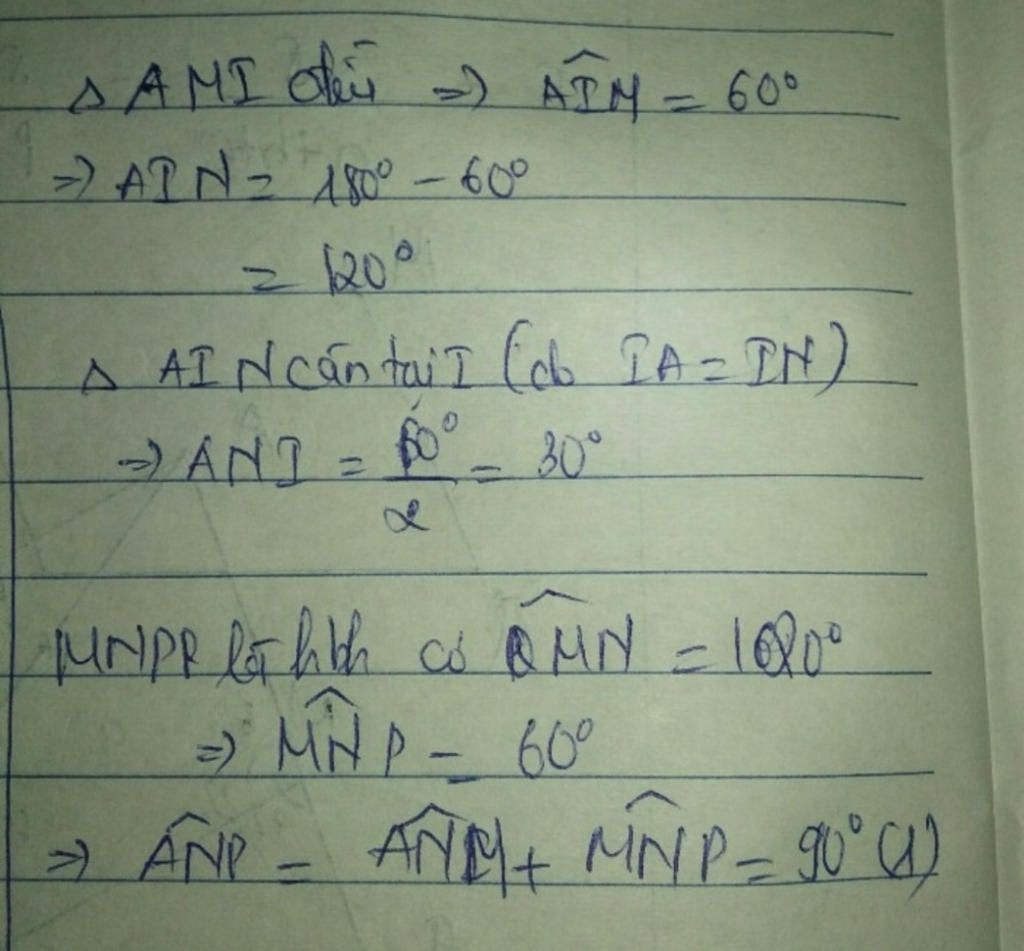 Δ AMI đều => AIM̂ = 60°
=> AIN = 180° - 60°
= 120°
Δ AIN cân tại I (do IA = IN)
=> ANI = 60°/2 = 30°
MNPQ là hbh có QMN̂ = 120°
=> MNP̂ = 60°
=> ANP̂ = ANM̂ + MNP̂ = 90° (1)